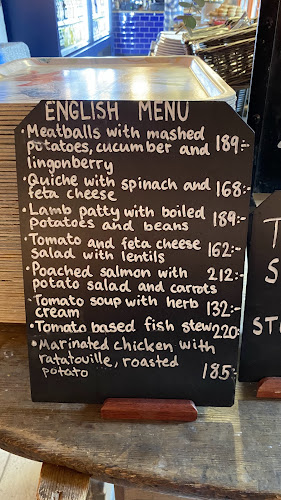 ENGLISH MENU
• Meatballs with mashed
potatoes, cucumber and 189:-
lingonberry
• Quiche with spinach and 168:-
feta cheese
• Lamb patty with boiled 189:-
Potatoes and beans
• Tomato and feta cheese 162:-
salad with lentils
• Poached salmon with 212:-
potato salad and carrots
• Tomato soup with herb 132:-
cream
• Tomato based fish stew 220:-
• Marinated chicken with
ratatouille, roasted
potato 185:-
T
S
ST